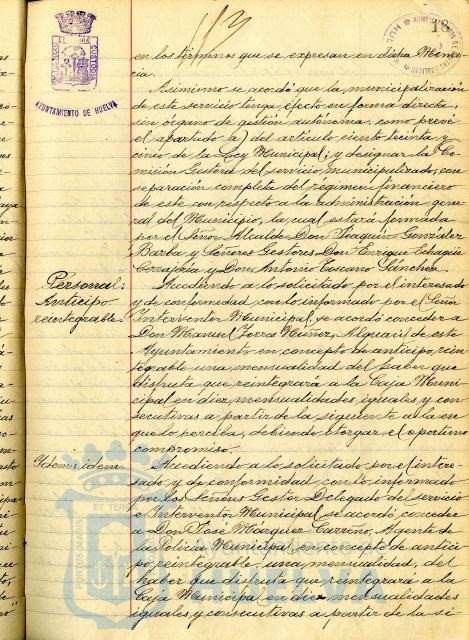 18
AYUNTAMIENTO DE HUELVA
en los términos que se expresan en dicha Memo-
cia.
Asimismo se acordó que la municipalización
de este servicio tenga efecto en forma directa,
sin órgano de gestión autónoma, como prevé
el apartado a) del artículo ciento treinta y
cinco de la Ley Municipal; y designar la Co-
misión Gestora del servicio municipalizado, con
separación completa del regimen financiero
de este con respecto a la administración gene-
ral del Municipio, la cual estará formada
por el Señor Alcalde Don Joaquín González
Barba y Señores Gestores Don Enrique Echagüe
y Don Antonio Toscano Sánchez.
Personal:
Anticipo
reintegrable.
Accediendo a lo solicitado por el interesado
y de conformidad con lo informado por el Señor
Interventor Municipal, se acordó conceder a
Don Manuel Torres Núñez, Alguacil de este
Ayuntamiento en concepto de anticipo, rein-
tegrable una mensualidad del haber que
disfruta que reintegrará a la Caja Muni-
cipal en diez mensualidades iguales y con-
secutivas a partir de la siguiente a la en
que lo perciba, debiendo otorgar el oportuno
compromiso.
Idem idem
Accediendo a lo solicitado por el intere-
sado y de conformidad con lo informado
por los Señores Gestor Delegado del servicio
e Interventor Municipal, se acordó conceder
a Don José Márquez Carreño, Agente de
la Policía Municipal, en concepto de antici-
po reintegrable una mensualidad, del
haber que disfruta que reintegrará a la
Caja Municipal en diez mensualidades
iguales y consecutivas a partir de la si-